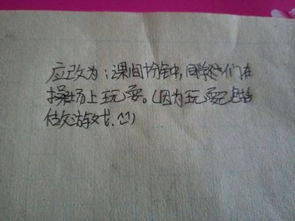 应改为:课间十分钟,同学们在
操场上玩耍。(因为玩耍已包
括做游戏.)